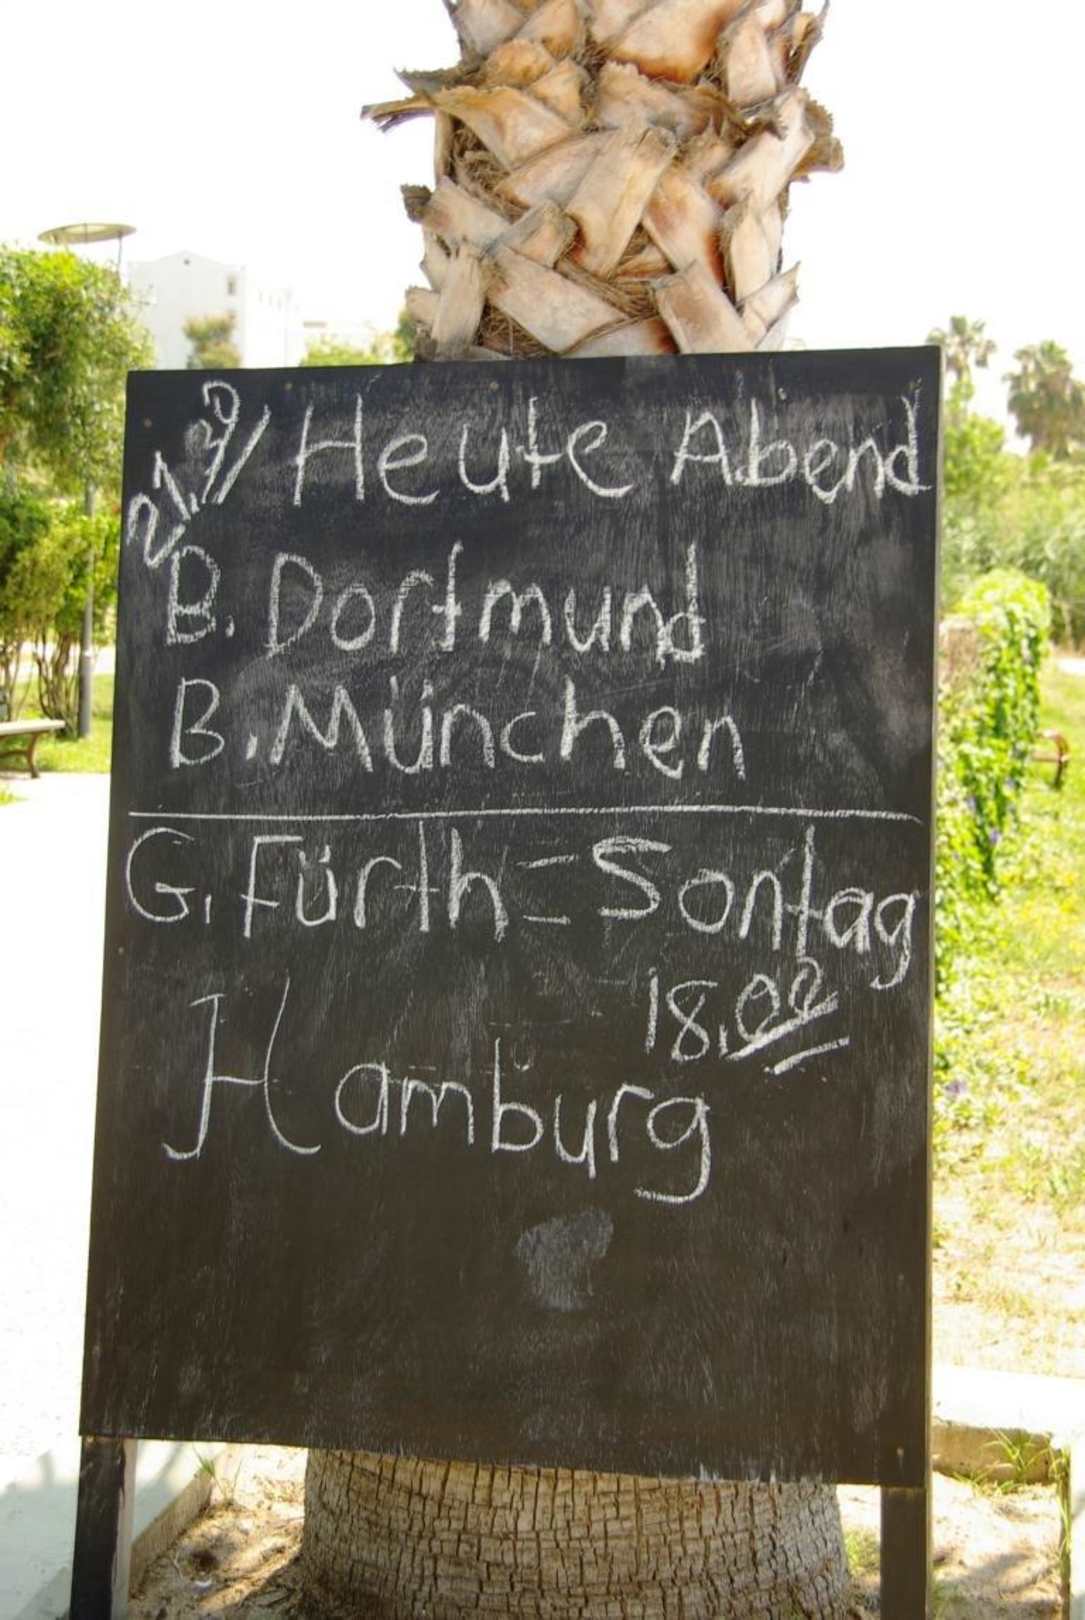 21.30/ Heute Abend
B. Dortmund
B. München
G. Fürth = Sontag
18.00
Hamburg